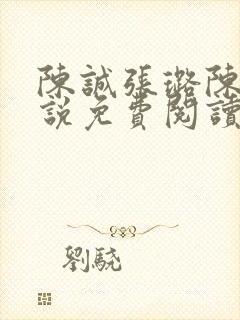 陳誠張璐陳
說免費閱讀
劉驍